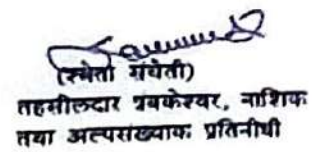 (स्वेता संचेती)
तहसीलदार त्र्यंबकेश्वर, नाशिक
तथा अल्पसंख्याक प्रतिनीधी